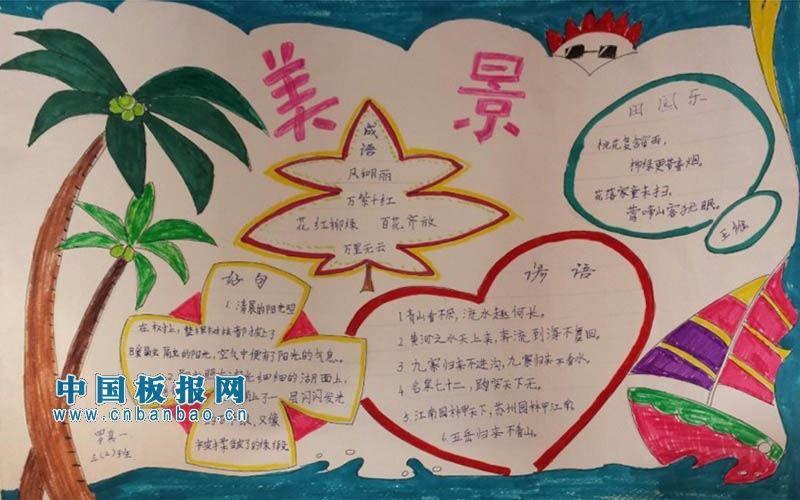 美景
成语
风和明丽
万紫千红
花红柳绿 百花齐放
万里无云
田园乐
桃花复含宿雨,
柳绿更带春烟。
花落家童未扫,
莺啼山客犹眠。
王维
好句
1.清晨的阳光照
在
暖融融的阳光,空气中便有了阳光的气息。
细细的湖面上,
闪闪发光
又像
谚语
1.青山看不尽,流水趣何长。
2.黄河之水天上来,奔流到海不复回。
3.九寨归来不进沟,九寨归来不看水。
4.名泉七十二,趵突天下无。
5.江南园林甲天下,苏州园林甲江南。
6.五岳归来不看山。
中国板报网
www.cnbanbao.cn
三(2)班